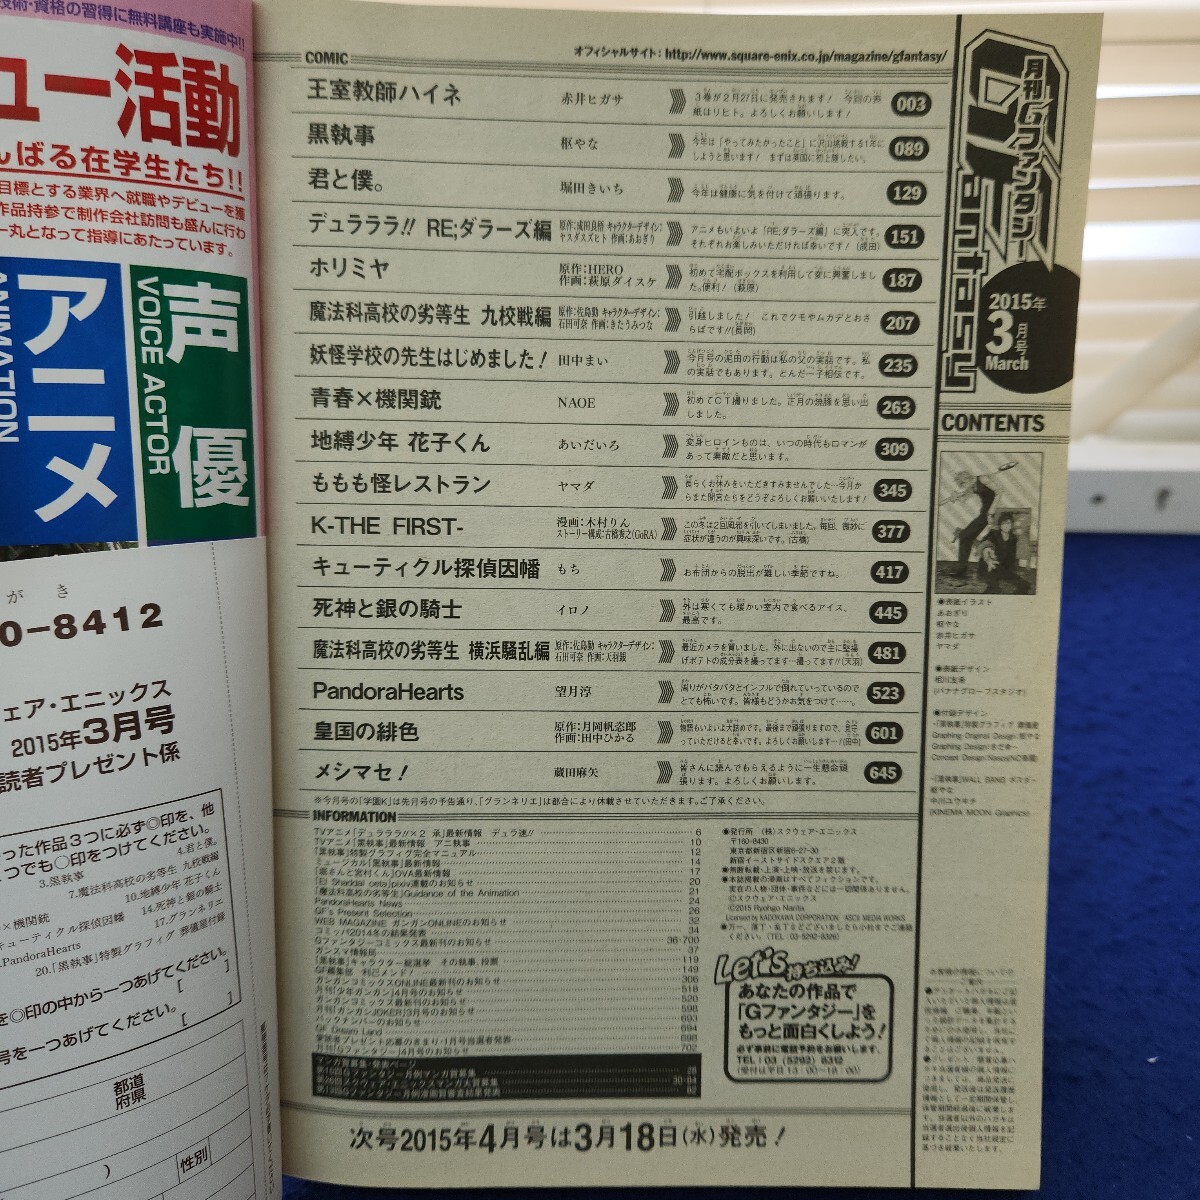 技術・資格の習得に無料講座も実施中!!
ュー活動
んばる在学生たち!!
目標とする業界へ就職やデビューを獲
作品持参で制作会社訪問も盛んに行わ
一丸となって指導にあたっています。
アニメ
ANIMATION
声優
VOICE ACTOR
がき
0-8412
ェア・エニックス
2015年3月号
読者プレゼント係
った作品3つに必ず◎印を、他
つでも○印をつけてください。
3.黒執事
4.君と僕。
7.魔法科高校の劣等生 九校戦編
×機関銃
10.地縛少年 花子くん
キューティクル探偵因幡
14.死神と銀の騎士
PandoraHearts
17.グランネリエ
20.「黒執事」特製グラフィグ 葬儀屋付録
を◎印の中から一つあげてください。
号を一つあげてください。
都道府県
性別
COMIC
オフィシャルサイト: http://www.square-enix.co.jp/magazine/gfantasy/
王室教師ハイネ 赤井ヒガサ 3巻が2月27日に発売されます! 今回の表紙はリヒト。よろしくお願いします! 003
黒執事 枢やな 今年は「やってみたかったこと」に沢山挑戦する1年にしようと思います! まずは英国に初上陸したい。 089
君と僕。 堀田きいち 今年は健康に気を付けて頑張ります。 129
デュラララ!! RE;ダラーズ編 原作:成田良悟 キャラクターデザイン:ヤスダスズヒト 作画:あおぎり アニメもいよいよ「RE;ダラーズ編」に突入です。それぞれお楽しみいただければ幸いです!(成田) 151
ホリミヤ 原作:HERO 作画:萩原ダイスケ 初めて宅配ボックスを利用して変に興奮しました。便利!(萩原) 187
魔法科高校の劣等生 九校戦編 原作:佐島勤 キャラクターデザイン:石田可奈 作画:きたうみつな 引越しました! これでクモやムカデとおさらばです!!(長岡) 207
妖怪学校の先生はじめました! 田中まい 今月号の泥田の行動は私の父の実話です。私の実話でもあります。とんだ一子相伝です。 235
青春×機関銃 NAOE 初めてCT撮りました。正月の焼豚を思い出しました。 263
地縛少年 花子くん あいだいろ 変身ヒロインものは、いつの時代もロマンがあって素敵だと思います。 309
ももも怪レストラン ヤマダ 長らくお休みをいただきすみませんでした…今月からまた間宮たちをどうぞよろしくお願いいたします! 345
K-THE FIRST- 漫画:木村りん ストーリー構成:古橋秀之(GoRA) この冬は2回風邪を引いてしまいました。毎回、微妙に症状が違うのが興味深いです。(古橋) 377
キューティクル探偵因幡 もち お布団からの脱出が難しい季節ですね。 417
死神と銀の騎士 イロノ 外は寒くても暖かい室内で食べるアイス、最高です。 445
魔法科高校の劣等生 横浜騒乱編 原作:佐島勤 キャラクターデザイン:石田可奈 作画:天羽銀 最近カメラを買いました。外に出ないので主に堅揚げポテトの成分表を撮ってます…撮ってます!!(天羽) 481
PandoraHearts 望月淳 周りがバタバタとインフルで倒れていっているのでとても怖いです。皆様もどうかお気をつけて――。 523
皇国の緋色 原作:月岡帆恣郎 作画:田中ひかる 物語もいよいよ大詰めです。最後まで頑張りますので、見守っていただけると幸いです。よろしくお願いします…!(田中) 601
メシマセ! 蔵田麻矢 皆さんに読んでもらえるように一生懸命頑張ります。よろしくお願いします。 645
※今月号の「学園K」は先月号の予告通り、「グランネリエ」は都合により休載させていただきます。ご了承ください。
INFORMATION
TVアニメ「デュラララ!!×2 承」最新情報 デュラ速!! 6
TVアニメ「黒執事」最新情報 アニ執事 10
「黒執事」特製グラフィグ完全マニュアル 12
ミュージカル「黒執事」最新情報 14
「堀さんと宮村くん」OVA最新情報 17
「El Shaddai ceta」pixiv連載のお知らせ 20
「魔法科高校の劣等生」Guidance of the Animation 21
PandoraHearts News 24
GF's Present Selection 26
WEB MAGAZINE ガンガンONLINEのお知らせ 32
コミッパ2014冬の結果発表 34
Gファンタジーコミックス最新刊のお知らせ 36・700
ガンスマ情報局 37
「黒執事」キャラクター総選挙 その執事、投票 119
GF編集部 利己メンド! 149
ガンガンコミックスONLINE最新刊のお知らせ 306
月刊「少年ガンガン」4月号のお知らせ 518
ガンガンコミックス最新刊のお知らせ 520
月刊「ガンガンJOKER」3月号のお知らせ 598
バックナンバーのお知らせ 693
GF Dream Land 694
愛読者プレゼント応募のきまり・1月号当選者発表 698
月刊「Gファンタジー」4月号のお知らせ 702
マンガ賞募集・発表ページ
●発行所 (株)スクウェア・エニックス
〒160-8430
東京都新宿区新宿6-27-30
新宿イーストサイドスクエア2階
●無断転載・上演・上映・放送を禁じます。
●本誌掲載の漫画はすべてフィクションです。
実在の人物・団体・事件などには一切関係ありません。
©スクウェア・エニックス
©2015 Ryohgo Narita
Licensed by KADOKAWA CORPORATION ASCII MEDIA WORKS
●万一、落丁・乱丁などございましたら小社までご連絡ください。(TEL:03-5292-8326)
Let's 持ち込み!
あなたの作品で
「Gファンタジー」を
もっと面白くしよう!
必ず事前に電話予約をお願いします。
TEL:03(5292)8312
(受付は平日13:00~18:00)
次号2015年4月号は3月18日(水)発売!
月刊Gファンタジー
Fantasy
2015年
3月号
March
CONTENTS
●表紙イラスト
あおぎり
枢やな
赤井ヒガサ
ヤマダ
●表紙デザイン
(バナナグローブスタジオ)
●付録デザイン
・「黒執事」WALL BANG ポスター
枢やな
(KINEMA MOON Graphics)